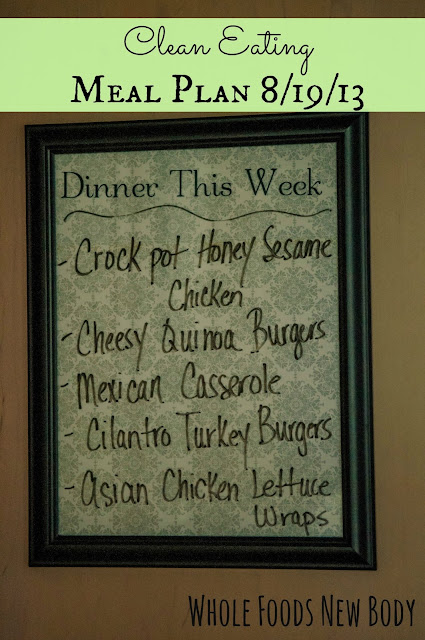 Clean Eating
Meal Plan 8/19/13
Dinner This Week
- Crock pot Honey Sesame
Chicken
- Cheesy Quinoa Burgers
- Mexican Casserole
- Cilantro Turkey Burgers
- Asian Chicken Lettuce
Wraps
Whole Foods New Body